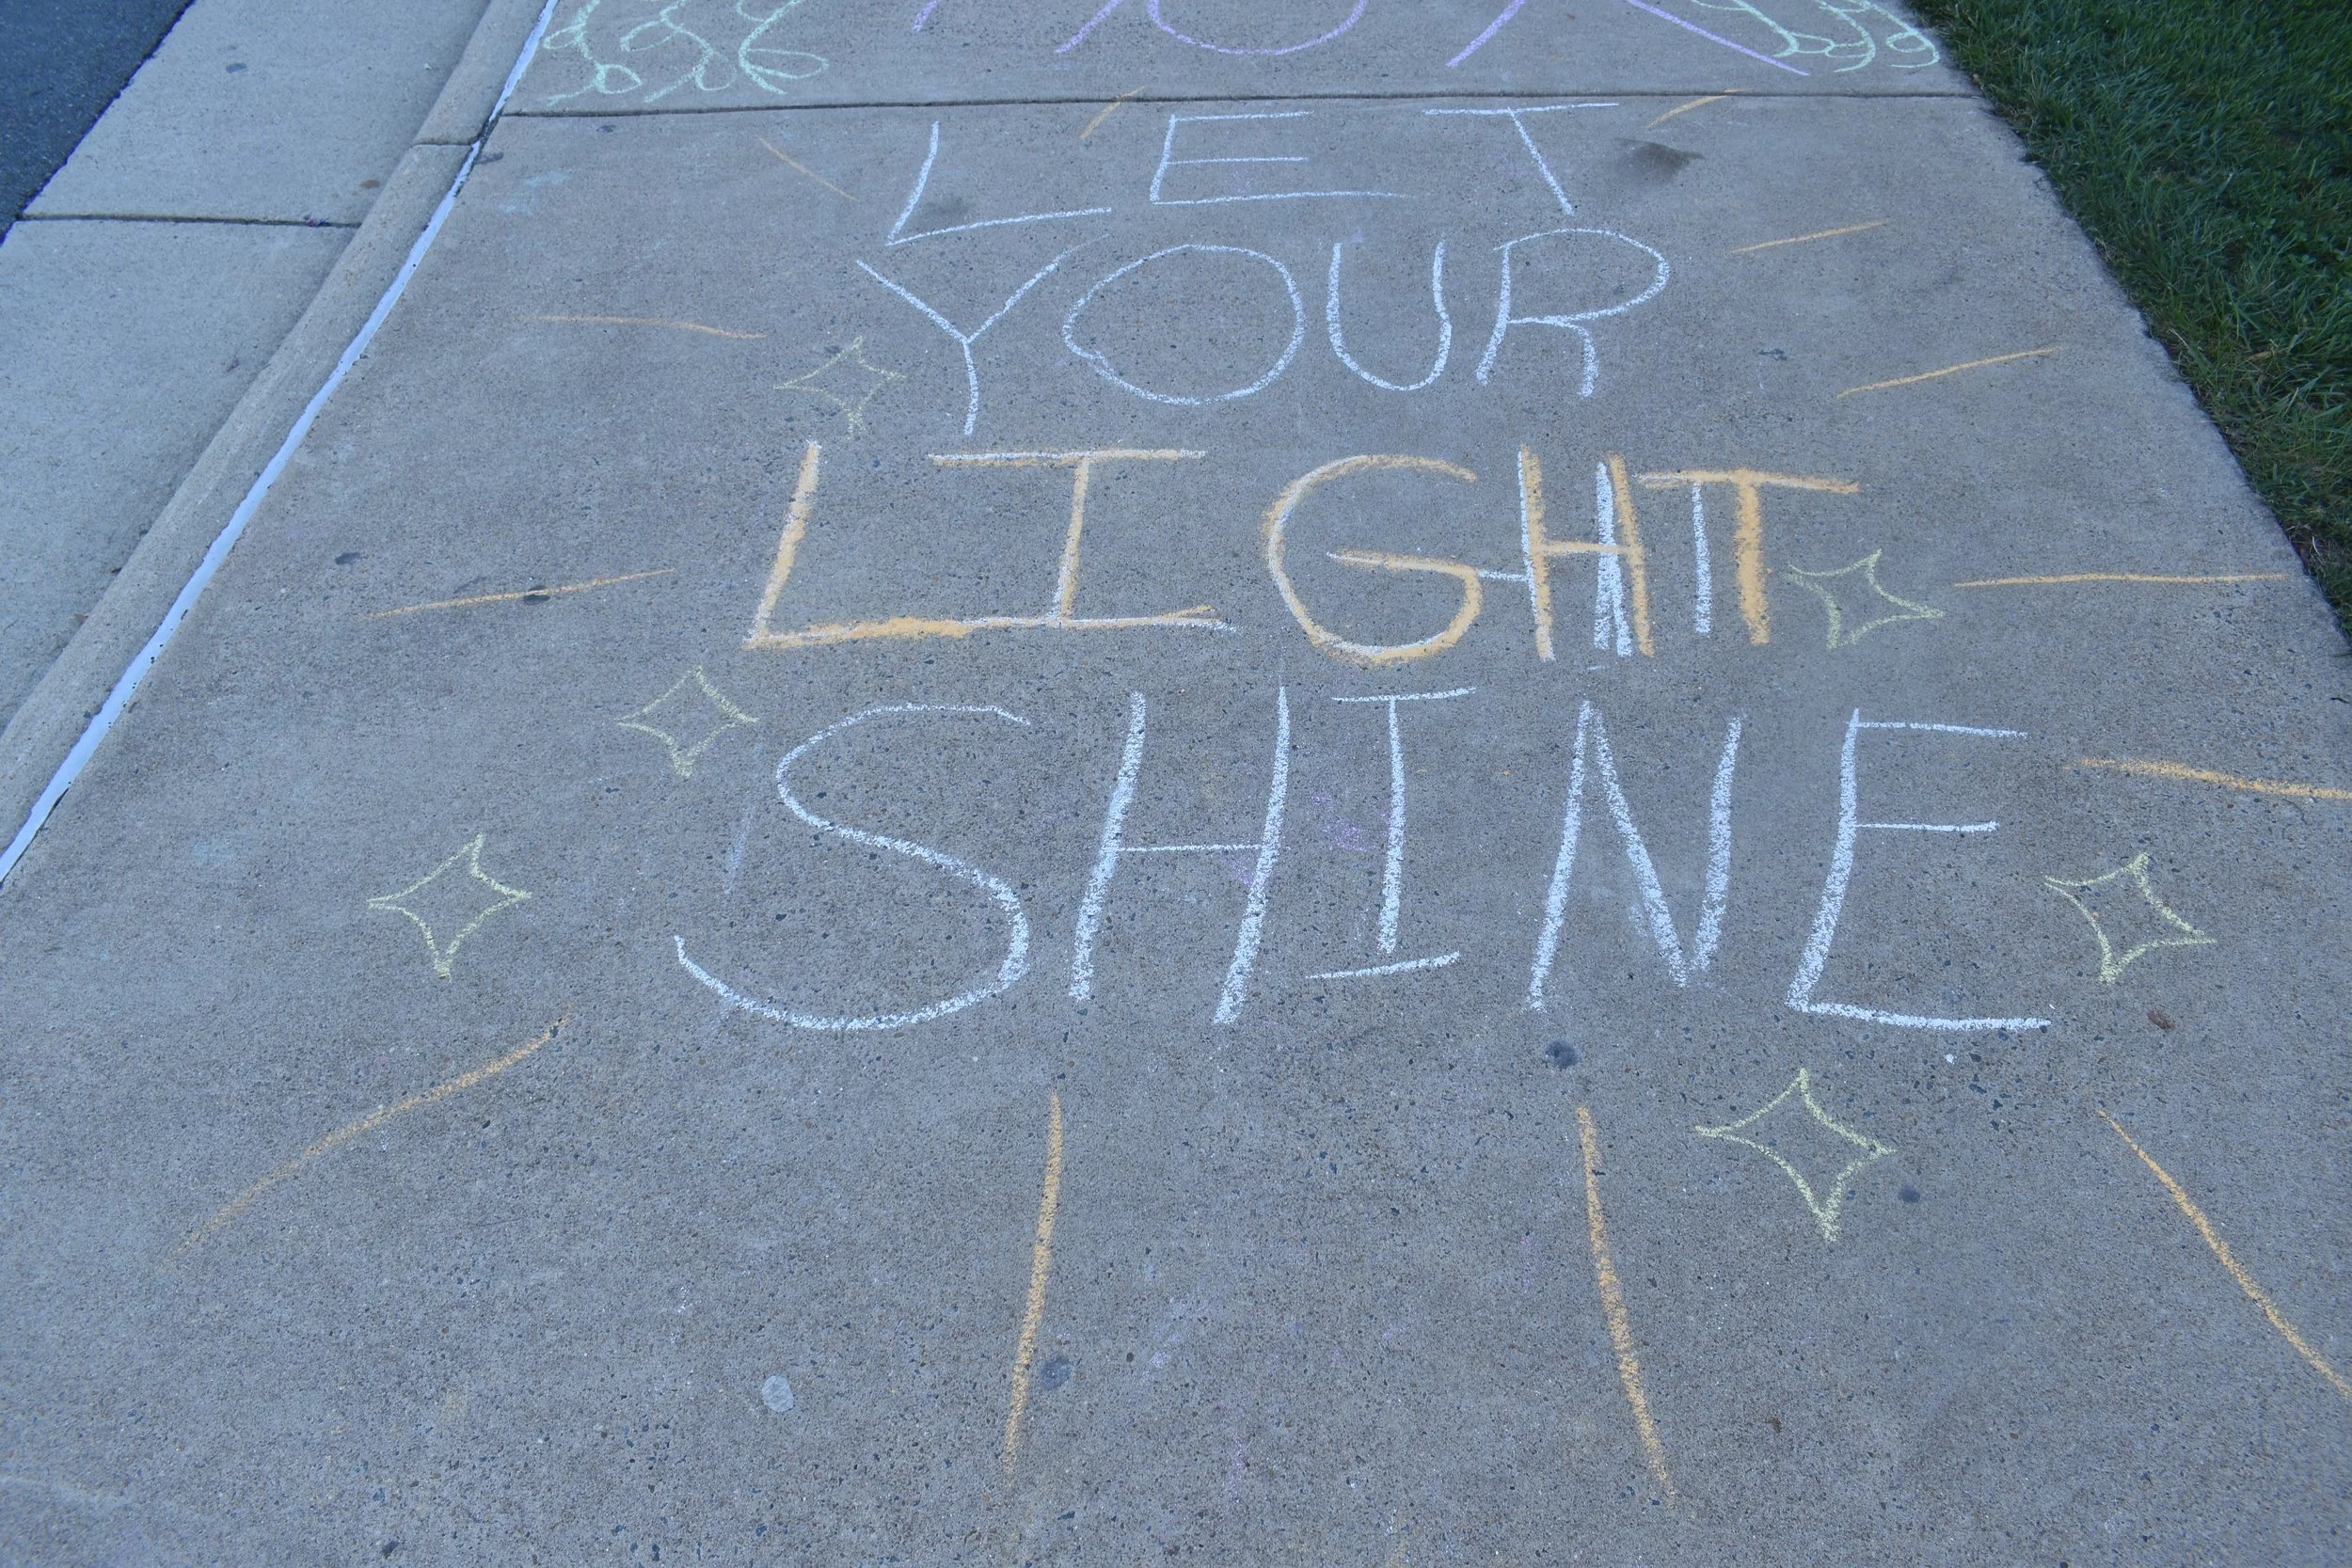 LET
YOUR
LIGHT
SHINE